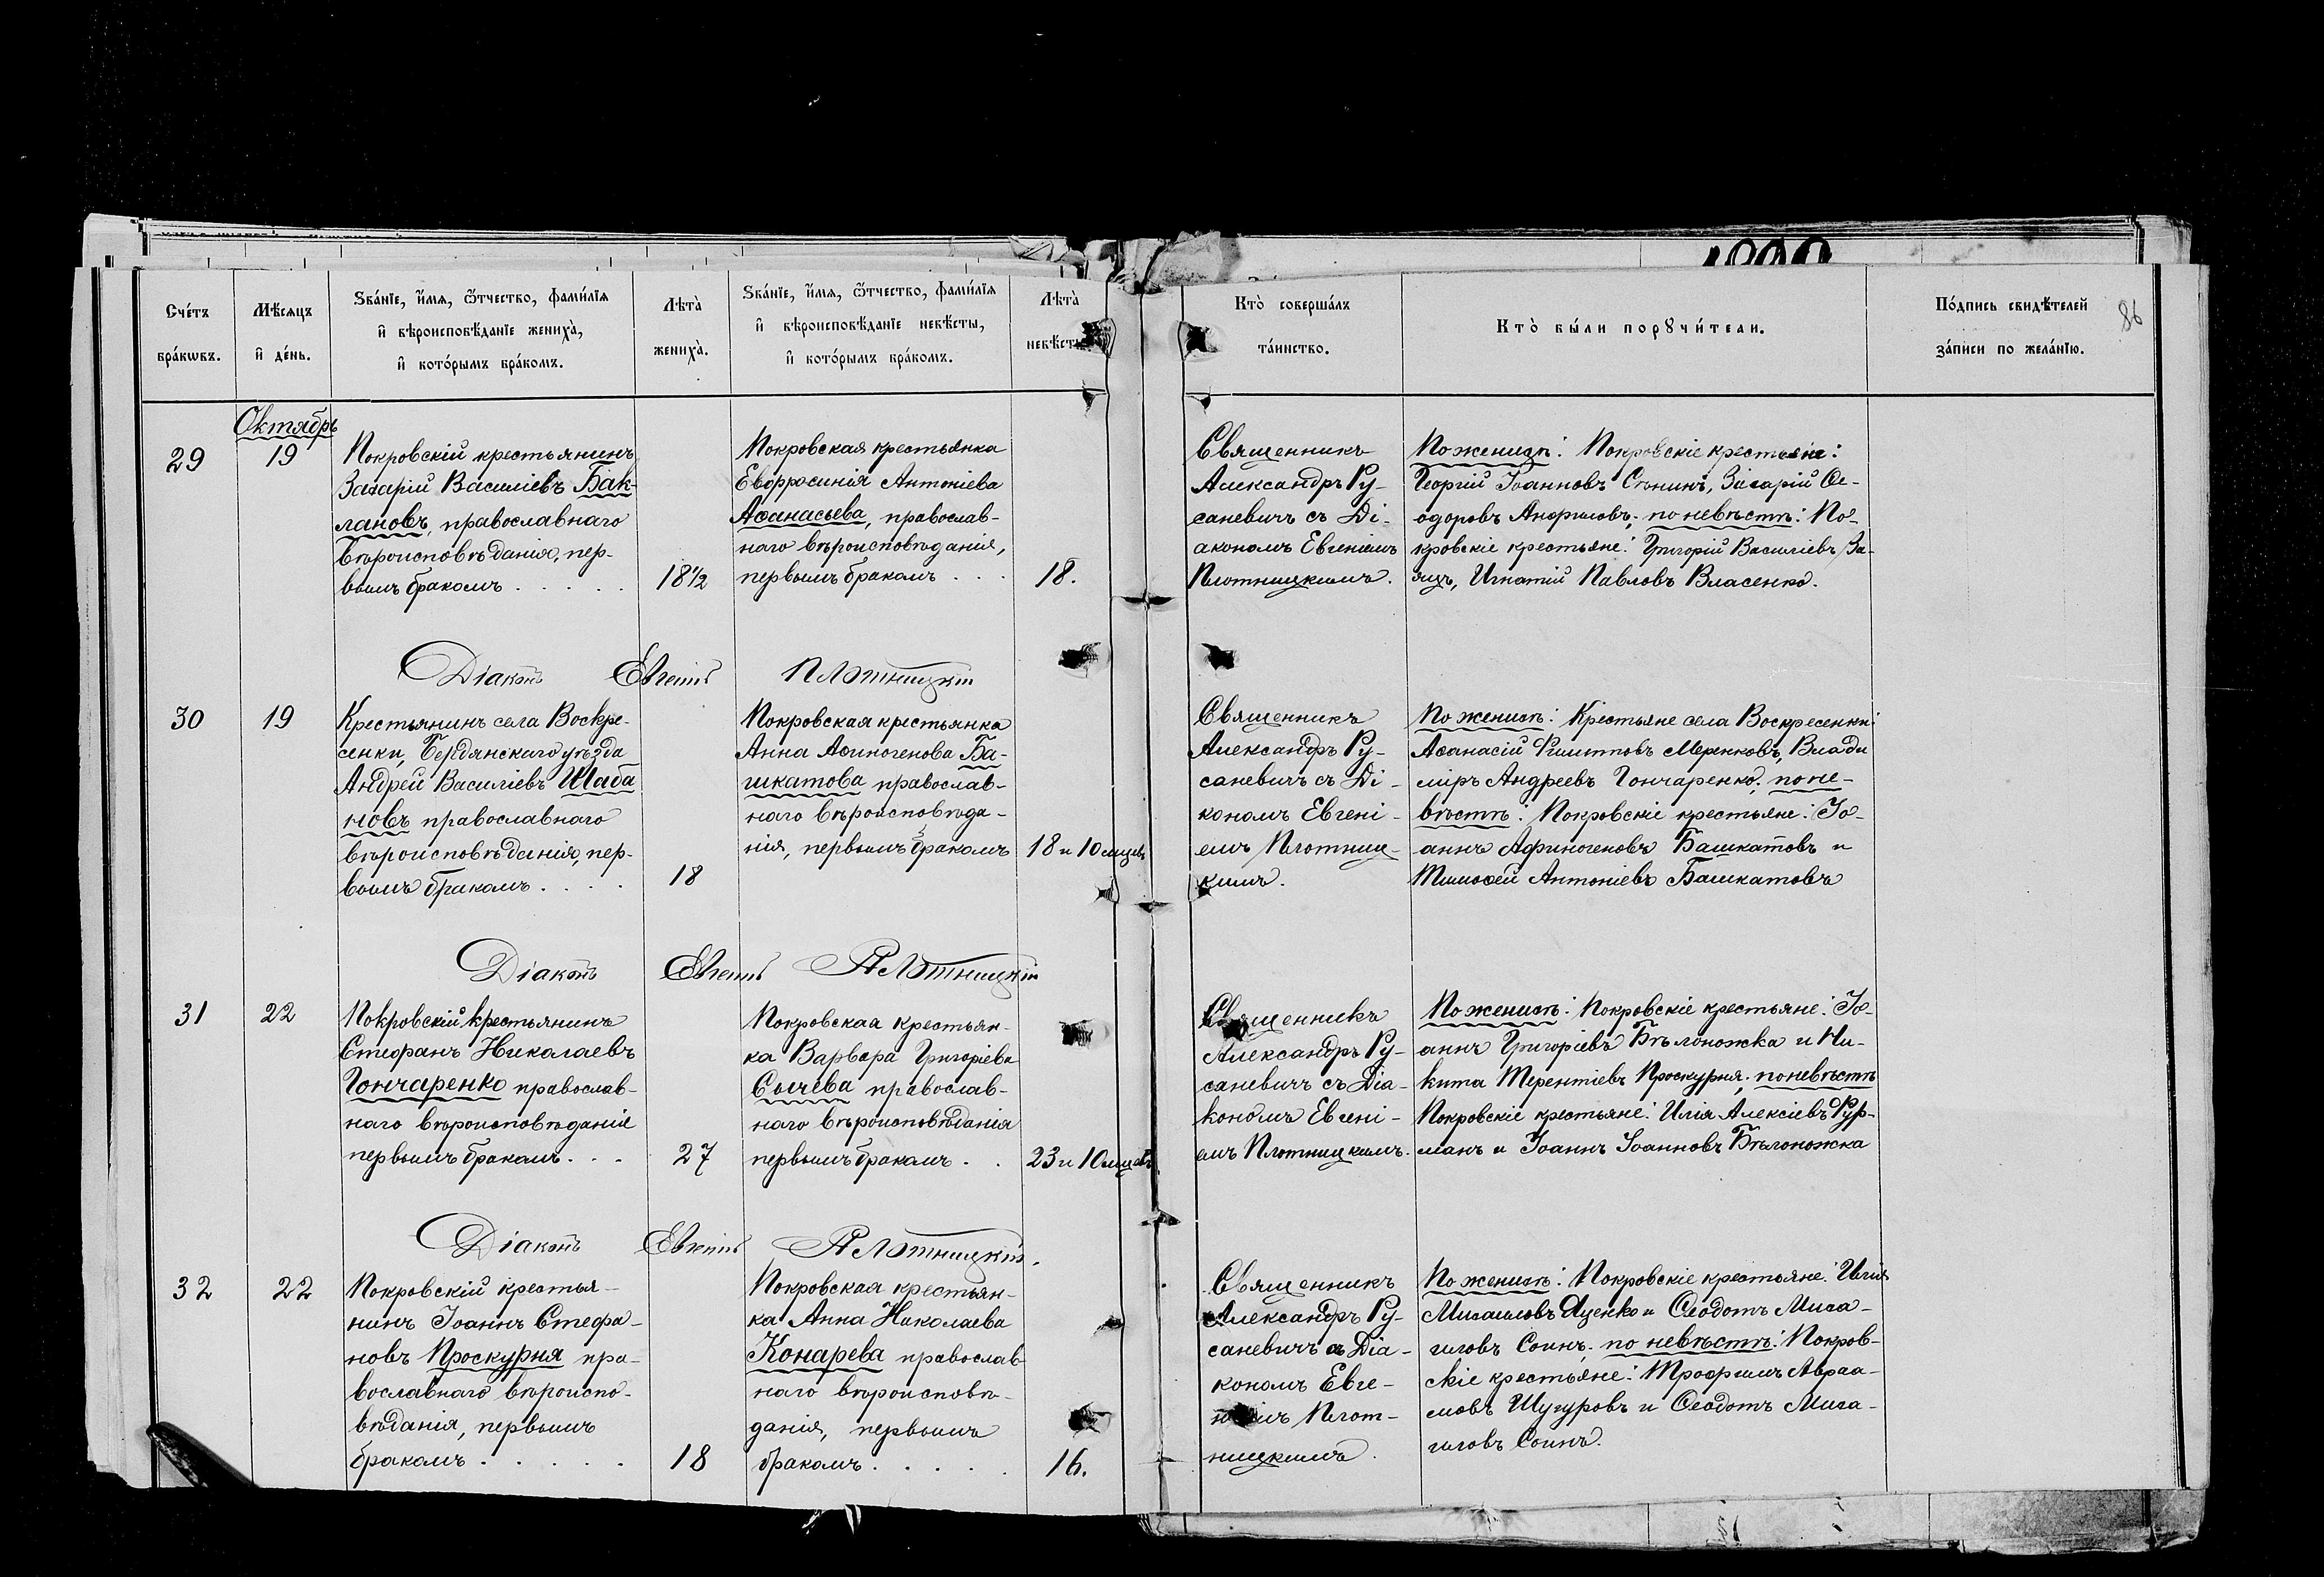 Счетъ браковъ.
Мѣсяцъ и день.
Званіе, имя, отчество, фамилія
и вѣроисповѣданіе жениха,
и которымъ бракомъ.
Лѣта
жениха.
Званіе, имя, отчество, фамилія
и вѣроисповѣданіе невѣсты,
и которымъ бракомъ.
Лѣта
невѣсты
Кто совершалъ
таинство.
Кто были поручители.
Подпись свидѣтелей
записи по желанію.
86
Октябрь
29
19
Покровскій крестьянинъ
Захарій Василіевъ Бак-
лановъ, православнаго
вѣроисповѣданія, пер-
вымъ бракомъ . . . . .
18½
Покровская крестьянка
Евфросинія Антоніева
Аѳанасьева, православ-
наго вѣроисповѣданія,
первымъ бракомъ . . .
18.
Священникъ
Александръ Ру-
саневичъ съ Ді-
акономъ Евгеніемъ
Плотницкимъ.
По женихѣ: Покровскіе крестьяне:
Георгій Іоанновъ Сонинъ, Захарій Ѳе-
одоровъ Анфиловъ; по невѣстѣ: По-
кровскіе крестьяне: Григорій Василіевъ За-
яцъ, Игнатій Павловъ Власенко.
Діаконъ Евгеній Плотницкій
30
19
Крестьянинъ села Воскре-
сенки, Бердянскаго уѣзда
Андрей Василіевъ Шаба
новъ православнаго
вѣроисповѣданія, пер-
вымъ бракомъ . . . .
18
Покровская крестьянка
Анна Аѳиногенова Ба-
шкатова православ-
наго вѣроисповѣда-
нія, первымъ бракомъ
18 и 10 мцевъ
Священникъ
Александръ Ру-
саневичъ съ Ді-
кономъ Евгені-
емъ Плотниц-
кимъ.
По женихѣ: Крестьяне села Воскресенки
Аѳанасій Филипповъ Меренковъ, Влади
міръ Андреевъ Гончаренко; по не-
вѣстѣ: Покровскіе крестьяне: Іо-
аннъ Афиногеновъ Башкатовъ и
Тимоѳей Антоніевъ Башкатовъ
Діаконъ Евгеній Плотницкій
31
22
Покровскій крестьянинъ
Стефанъ Николаевъ
Гончаренко православ-
наго вѣроисповѣданія
первымъ бракомъ . . .
27
Покровская крестьян-
ка Варвара Григоріева
Сычева православ-
наго вѣроисповѣданія
первымъ бракомъ . .
23 и 10 мцевъ.
Священникъ
Александръ Ру-
саневичъ съ Діа-
кономъ Евгені-
емъ Плотницкимъ.
По женихѣ: Покровскіе крестьяне: Іо-
аннъ Григоріевъ Бѣлоножка и Ни-
кита Терентіевъ Проскурня; по невѣстѣ
Покровскіе крестьяне: Илія Алексіевъ Фур-
манъ и Іоаннъ Іоанновъ Бѣлоножка
Діаконъ Евгеній Плотницкій.
32
22
Покровскій крестья-
нинъ Іоаннъ Стефа-
новъ Проскурня пра-
вославнаго вѣроиспо-
вѣданія, первымъ
бракомъ . . . . .
18
Покровская крестьян-
ка Анна Николаева
Конарева православ-
наго вѣроисповѣ-
данія, первымъ
бракомъ . . . . .
16.
Священникъ
Александръ Ру-
саневичъ съ Діа-
кономъ Евге-
ніемъ Плот-
ницкимъ.
По женихѣ: Покровскіе крестьяне: Илія
Михаиловъ Яценко и Ѳеодотъ Миха-
иловъ Сонинъ; по невѣстѣ: Покров-
скіе крестьяне: Трофимъ Авраа-
мовъ Шугуровъ и Ѳеодотъ Миха-
иловъ Сонинъ.